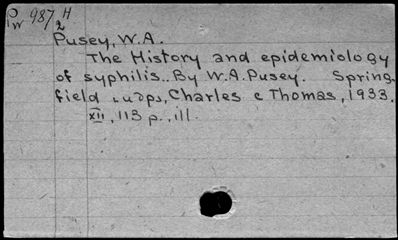 Pw 987 H
2
Pusey, W.A.
The History and epidemiology
of syphilis.. By W.A. Pusey. Spring-
field, Charles C Thomas, 1933.
xii, 113 p., ill.